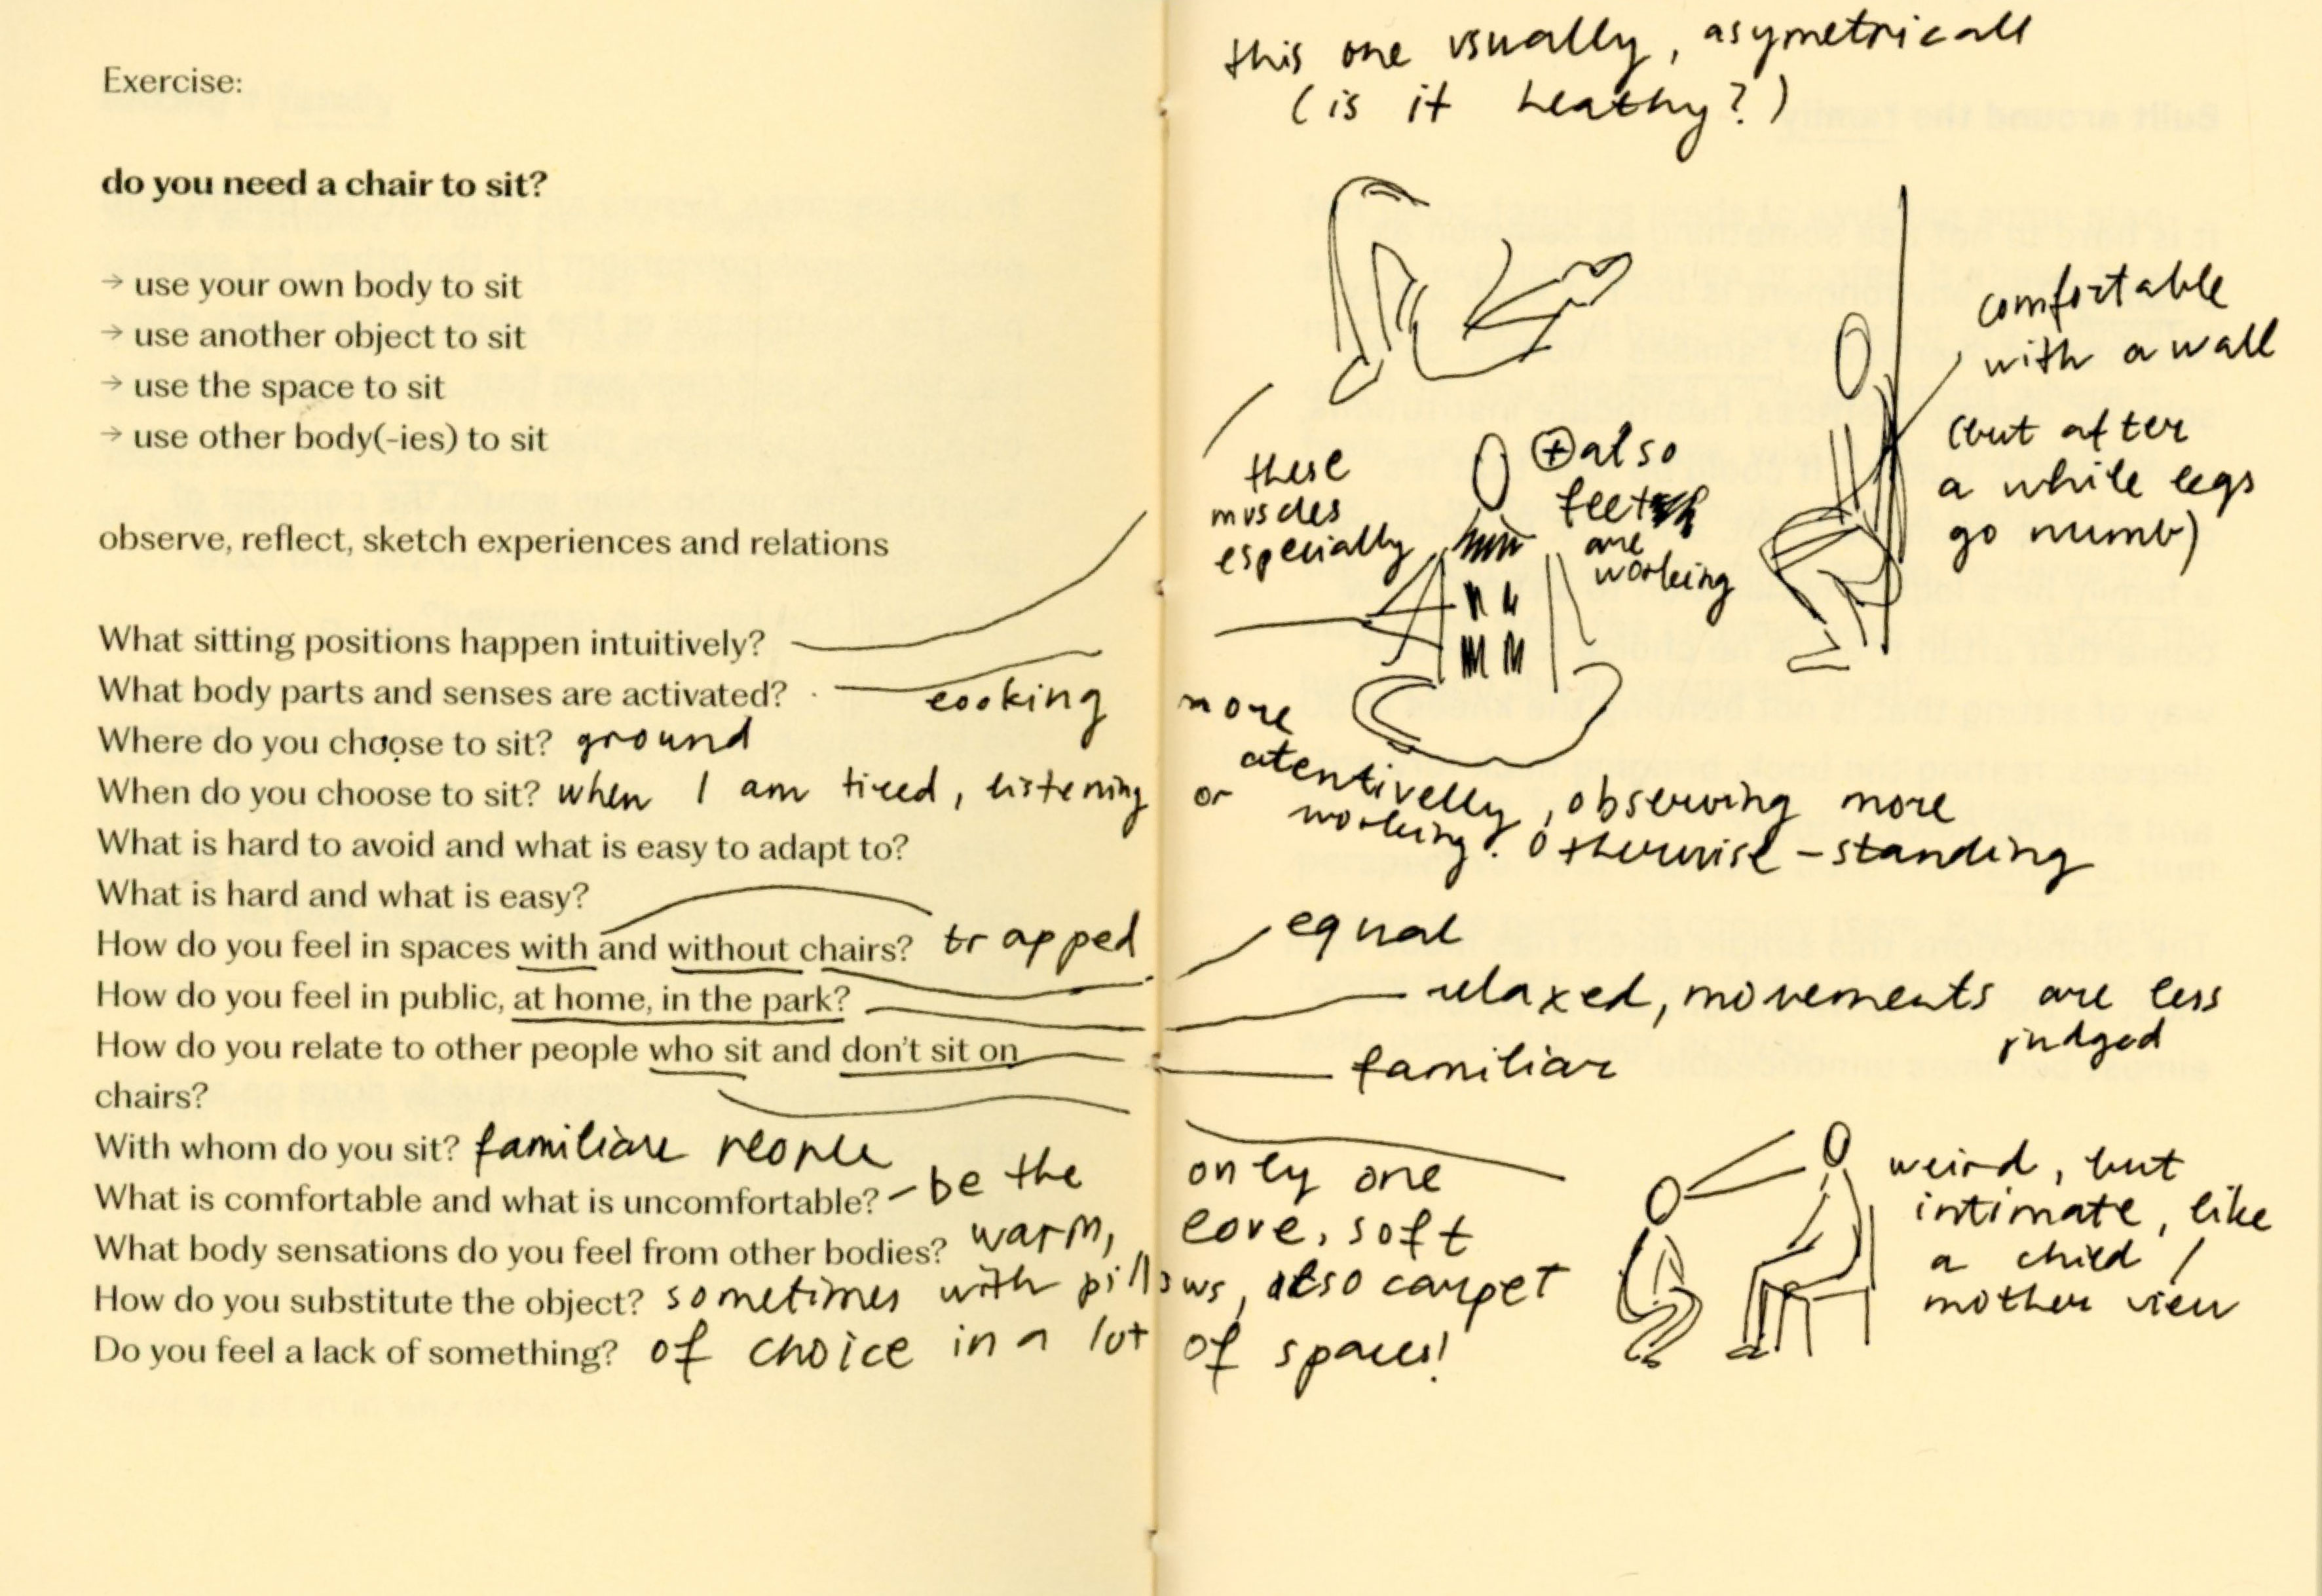 Exercise:
do you need a chair to sit?
→ use your own body to sit
→ use another object to sit
→ use the space to sit
→ use other body(-ies) to sit
observe, reflect, sketch experiences and relations
What sitting positions happen intuitively?
What body parts and senses are activated?
Where do you choose to sit? ground
When do you choose to sit? when I am tired, listening
What is hard to avoid and what is easy to adapt to?
What is hard and what is easy?
How do you feel in spaces with and without chairs? trapped
How do you feel in public, at home, in the park?
How do you relate to other people who sit and don't sit on
chairs?
With whom do you sit? familiar people
What is comfortable and what is uncomfortable? – be the only one
What body sensations do you feel from other bodies? warm, love, soft
How do you substitute the object? sometimes with pillows, also carpet
Do you feel a lack of something? of choice in a lot of spaces!
this one usually, asymetricall
(is it heathy?)
comfortable
with a wall
(but after
a while legs
go numb)
these
muscles
especially
+ also
feet
are
working
cooking
more
atentivelly, observing more
or working. Otherwise – standing
equal
relaxed, movements are less
judged
familiar
weird, but
intimate, like
a child /
mother view